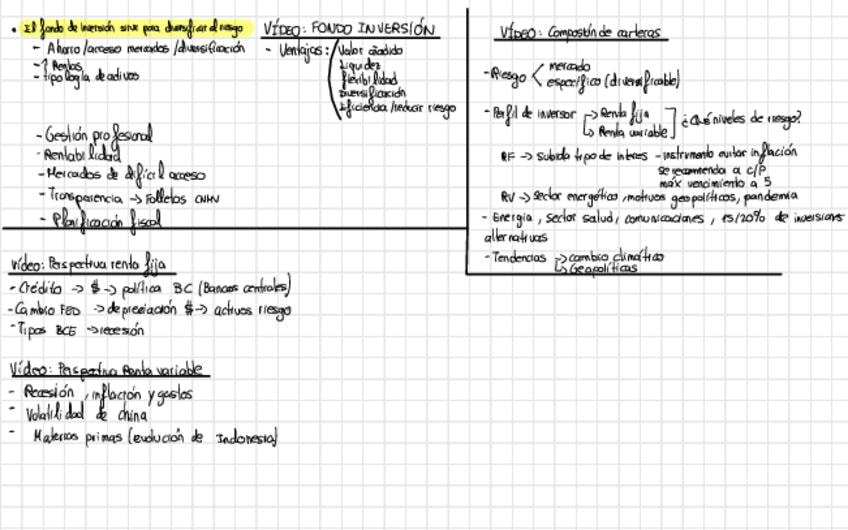 • El fondo de inversión sirve para diversificar el riesgo
- Ahorro/acceso mercados/diversificación
- ? Rentas
- tipología de activos
- Gestión profesional
- Rentabilidad
- Mercados de difícil acceso
- Transparencia → Folletos CNMV
- Planificación fiscal
VÍDEO: FONDO INVERSIÓN
- Ventajas: Valor añadido
Liquidez
flexibilidad
Diversificación
Eficiencia/reducir riesgo
Vídeo: Composición de carteras
- Riesgo < mercado
específico (diversificable)
- Perfil de inversor → Renta fija
→ Renta variable ] ¿Qué niveles de riesgo?
RF → Subida tipo de interes - instrumento evitar inflación
se recomienda a c/p
máx vencimiento a 5
RV → Sector energético, motivos geopolíticos, pandemia
- Energía, sector salud, comunicaciones, 15/20% de inversions
alternativas
- Tendencias → cambio climático
→ Geopolíticas
Vídeo: Perspectiva renta fija
- Crédito → $ → política BC (Bancos centrales)
- Cambio FED → depreciación $ → activos riesgo
- Tipos BCE → recesión
Vídeo: Perspectiva Renta variable
- Recesión, inflación y gastos
- Volatilidad de china
- Materias primas (evolución de Indonesia)